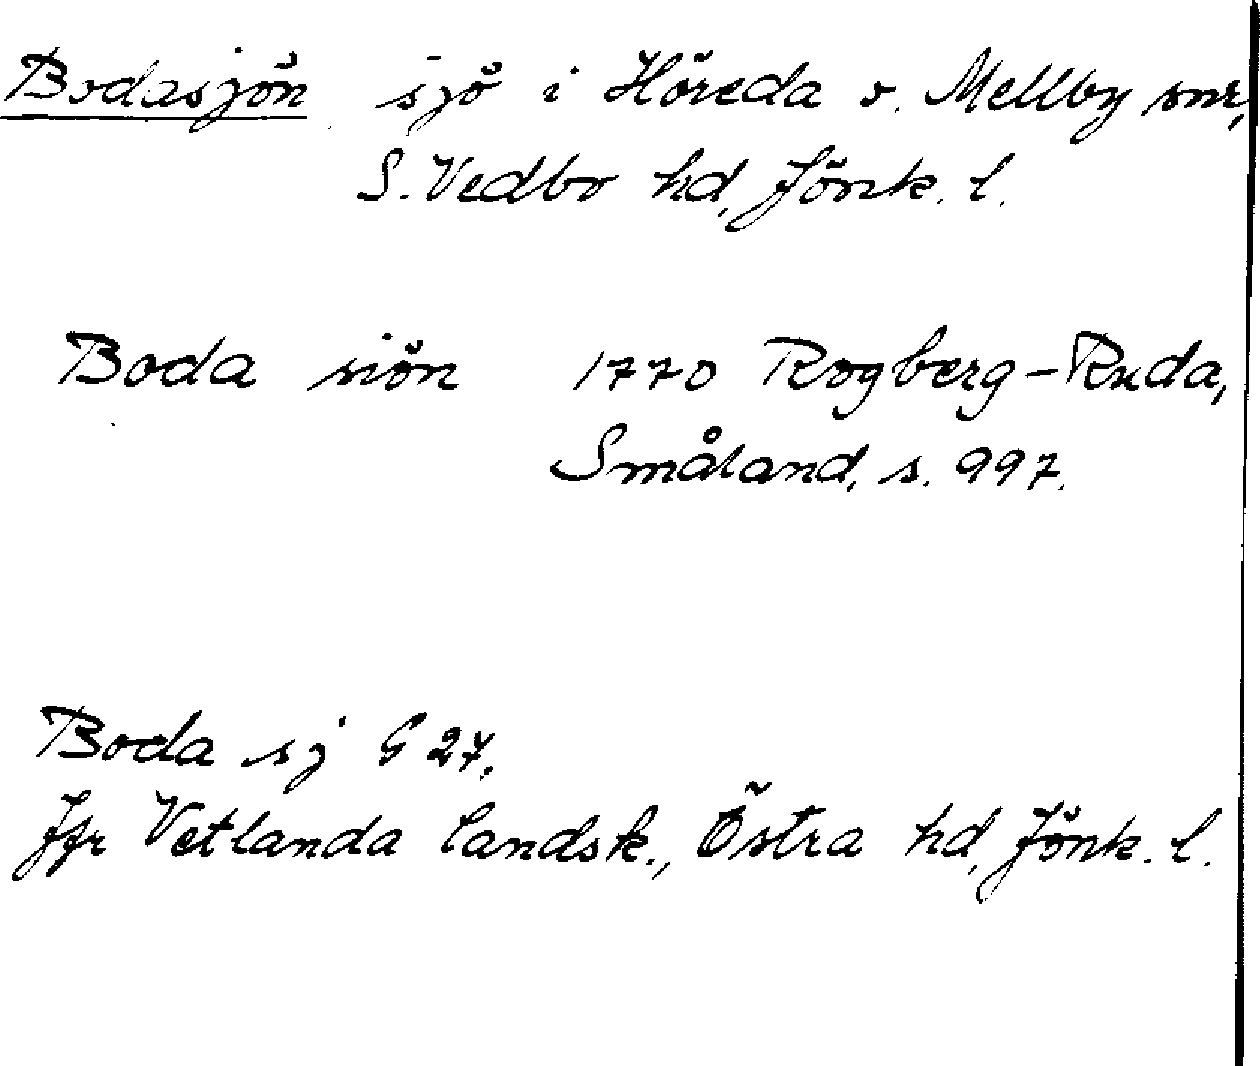 Bodasjön sjö i Höreda o. Mellby snr,
S. Vedbo hd, Jönk. l.
Boda siön 1770 Rogberg-Ruda,
Småland, s. 997.
Boda sj G 27.
Jfr Vetlanda landsk., Östra hd, Jönk. l.